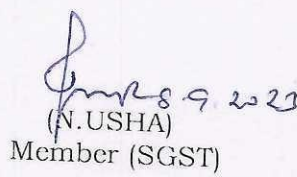 8.9.2023
(N.USHA)
Member (SGST)